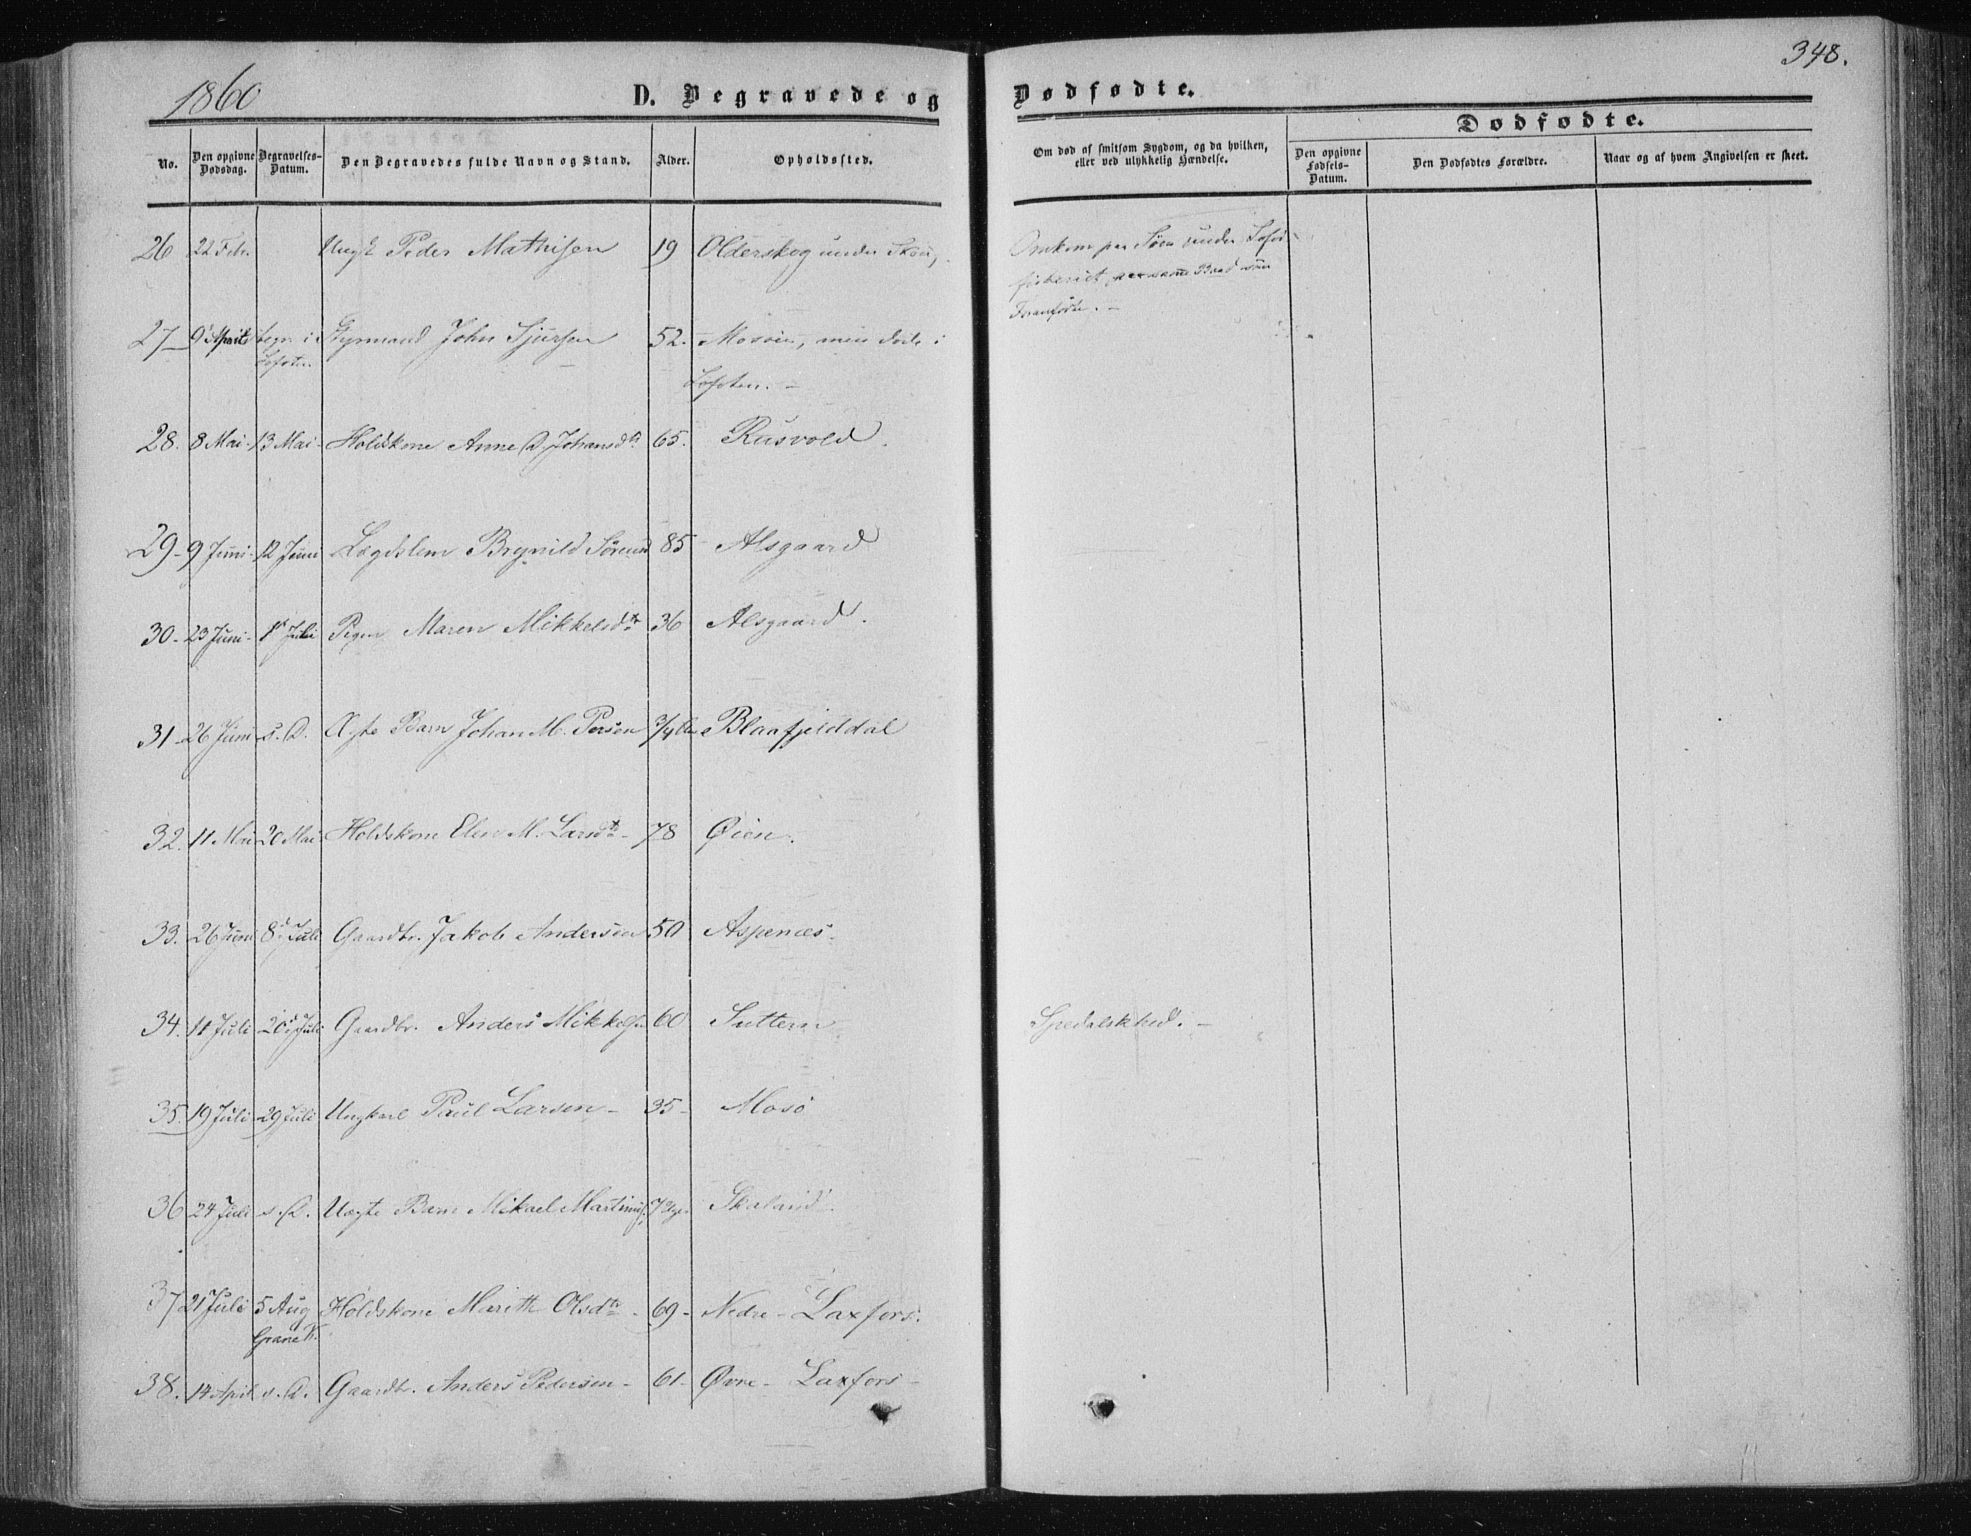 1860
D. Begravede og Dødfødte.
348.
No.
Den opgivne Dødsdag.
Begravelses-Datum.
Den Begravedes fulde Navn og Stand.
Alder.
Opholdssted.
Om død af smitsom Sygdom, og da hvilken, eller ved ulykkelig Hændelse.
Dødfødte.
Den opgivne Fødsels-Datum.
Den Dødfødtes Forældre.
Naar og af hvem Angivelsen er skeet.
26 22 Febr. Ungk. Peder Mathisen 19 Olderskog under Skou,
Omkom paa Søen under Lofot-
fiskeriet paa samme Baad som
Foranførte. -
27 9 April begr. i Styrmand John Sjursen 52. Mosøen, men døde i
Lofoten. Lofoten. -
28. 8 Mai 13 Mai Holdskone Anne D. Johansdtr 65. Rusvold.
29 9 Juni 12 Juni Lægdslem Brynild Sørensd 85 Alsgaard
30 23 Juni 1 Juli Pigen Maren Mikkelsdtr 36 Alsgaard.
31 26 Juni s. D. Ægte Barn Johan M. Persen 3/4 Blaafjelddal
32. 11 Mai 20 Mai Holdskone Elen M. Larsdtr 78 Øien.
33. 26 Juni 8de Juli Gaardbr. Jakob Andersen 50 Aspenæs.
34. 11 Juli 20de Juli Gaardbr. Anders Mikkelsen 60 Suttern Spedalskhed. -
35. 19 Juli 29 Juli Ungkarl Paul Larsen - 35 - Mosø
36 24 Juli s. D. Uægte Barn Mikael Martinus 7 Dage Skaland.
37 21 Juli 5 Aug Holdskone Marith Olsdtr - 69 - Nedre - Laxfors.
Grane K.
38. 14 April s. D. Gaardbr. Anders Pedersen - 61 - Øvre - Laxfors -